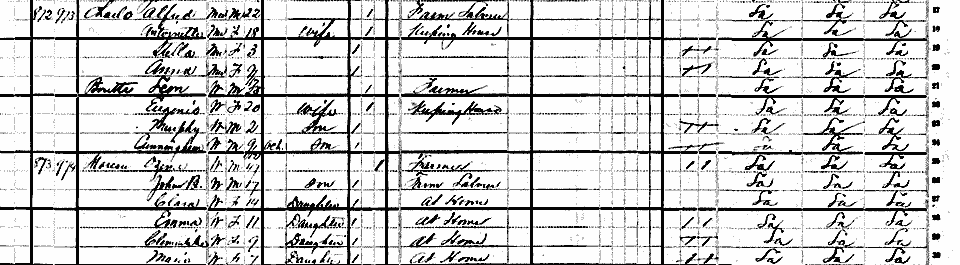 872 973 Charlo Alfred Mu M 22 1 Farm Laborer La La La 17
Antoinette Mu F 18 Wife 1 Keeping House La La La
Stella Mu F 3 1 La La La 19
Anna Mu F 1 La La La 20
Boutte Leon W M 1 Farmer La La La 21
Eugenie W F 20 Wife 1 Keeping House La La La
Murphy W M 2 Son 1 La La La 23
Cunningham W M Oct. Son 1 La La La 24
873 974 Moreau W M 1 Farmer 1 1 La La La 25
John B. W M 17 Son 1 Farm Laborer La La La
Clara W F 14 Daughter 1 At Home La La La
Emma W F 11 Daughter 1 At Home 1 1 La La La
W F 9 Daughter 1 At Home La La La
Marie W F 7 Daughter 1 At Home La La La 30